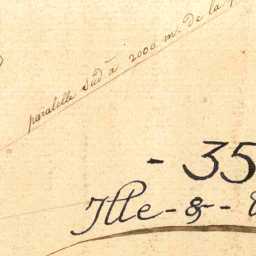 paralelle sud à 2000 m. de la
- 35
Ille-&-